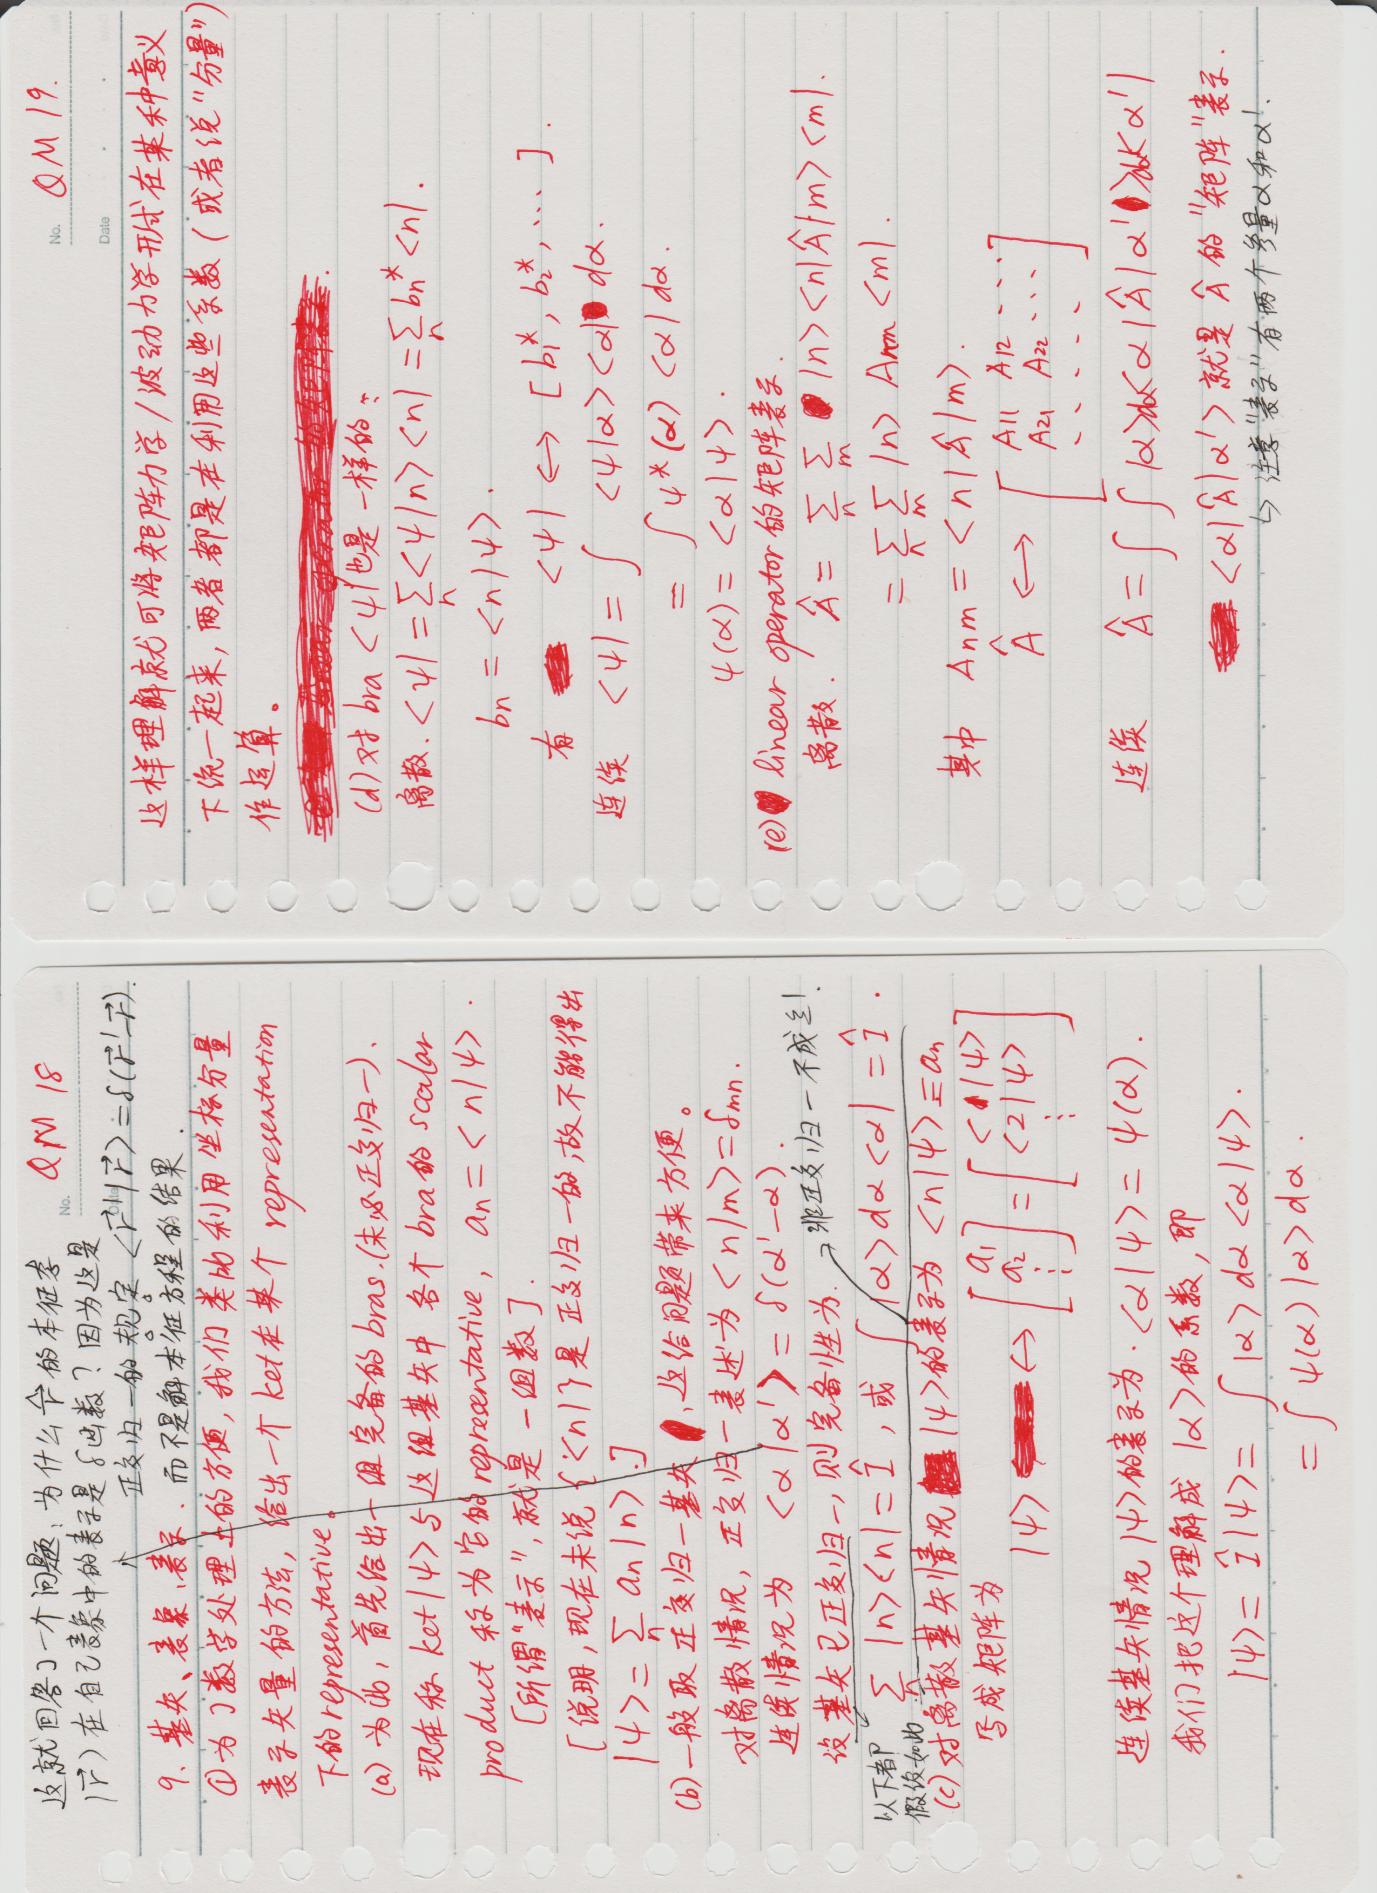 QM 18
这就回答了一个问题：为什么 r̂ 的本征态
|r⃗⟩在自己表象中的表示是δ函数？因为这是
正交归一的规定 ⟨r⃗'|r⃗⟩=δ(r⃗'-r⃗).
而不是解本征方程的结果.
9. 基矢、表象、表示.
①为了数学处理上的方便，我们类似利用坐标分量
表示矢量的方法，给出一个 ket 在某个 representation
下的 representative。
(a) 为此，首先给出一组完备的 bras.(未必正交归一).
现在称 ket|ψ>与这组基矢中各个 bra 的 scalar
product 称为它的 representative, an = <n|ψ>.
[所谓"表示"，就是一组数].
[说明，现在未说{<n|}是正交归一的，故不能得出
|ψ> = ∑n an |n>.]
(b) 一般取正交归一基矢，这给问题带来方便。
对离散情况，正交归一表述为 <n|m> = δmn.
连续情况为 <α|α'> = δ(α'-α).
设基矢已正交归一，则完备性为.
→ 非正交归一不成立！
以下都
假设如此
∑n |n><n| = Î , 或 ∫ |α> dα <α| = Î .
(c) 对离散基矢情况 |ψ>的表示为 <n|ψ> ≡ an
写成矩阵为
|ψ> ↔ [a1 a2 ⋮] = [< |ψ> <2|ψ> ⋮]
连续基矢情况 |ψ>的表示为. <α|ψ> = ψ(α).
我们把这个理解成 |α>的系数，即
|ψ> = Î|ψ> = ∫ |α> dα <α|ψ>.
= ∫ ψ(α) |α> dα .
QM 19.
这样理解就可将矩阵力学/波动力学形式在某种意义
下统一起来，两者都是在利用这些系数 (或者说"分量")
作运算。
(d) 对 bra <ψ| 也是一样的：
离散. <ψ| = ∑n <ψ|n> <n| = ∑n bn* <n|.
bn = <n|ψ>.
有 <ψ| ↔ [b1*, b2*, ⋯].
连续 <ψ| = ∫ <ψ|α> <α| dα.
= ∫ ψ*(α) <α| dα.
ψ(α) = <α|ψ>.
(e) linear operator 的矩阵表示.
离散. Â = ∑n ∑m |n><n|Â|m><m|.
= ∑n ∑m |n> Anm <m|.
其中 Anm = <n|Â|m>.
Â ↔ [A11 A12 ⋯ A21 A22 ⋯ ⋯⋯]
连续 Â = ∫ ∫ |α>dα<α|Â|α'>dα'<α'|
<α|Â|α'> 就是 Â 的"矩阵"表示.
↳ 注意"表示"有两个参量α和α'.